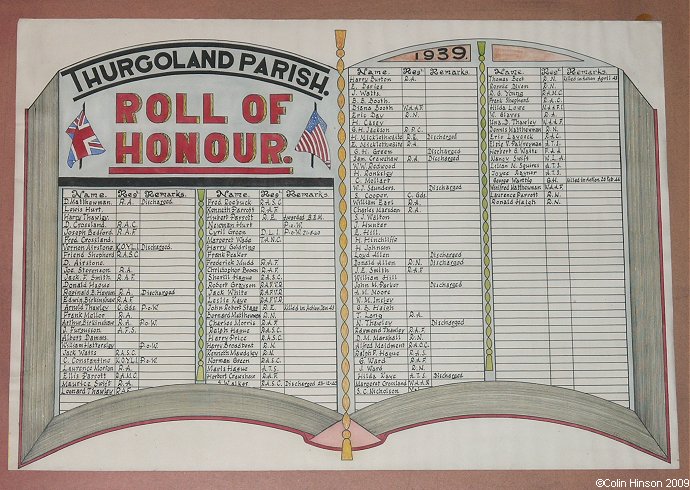 THURGOLAND PARISH.
ROLL OF
HONOUR.
Name. Regt Remarks.
D. Matthewman. R.A. Discharged.
Lewis Hurt.
Harry Thawley.
D. Crossland. R.A.C.
Joseph Bedford. R.A.F.
Fred. Crossland.
Vernon Airstone. K.O.Y.L.I Discharged.
Friend Shepherd R.A.S.C.
D. Airstone.
Joe Stevenson. R.A.
Jack. F. Smith. R.A.F.
Donald Hague
Reginald B. Haywood R.A. Discharged
Edwin Birkinshaw R.A.F.
Arnold Thawley C. Gds. P.o.W.
Frank Mellor. R.A.
Arthur Birkinshaw R.A. P.o.W.
J. Furgusson. A.F.S.
Albert Damms.
William Hattersley P.o.W.
Jack Watts R.A.S.C.
C. Constantine K.O.Y.L.I P.o.W.
Laurence Morton R.A.
Ellis Parrott R.A.M.C.
Maurice Swift R.A.
Leonard Thawley R.A.F.
Name. Regt Remarks.
Fred. Roebuck R.A.S.C.
Kenneth Parrott R.A.F.
Hubert Parrott R.E. Awarded B.E.M.
Newman Hurt P.o.W.
Cyril Green D.L.I P.o.W.
Margaret Wade T.A.N.C.
Harry Goldring
Frank Peaker
Frederick Mudd R.A.F.
Christopher Broom R.A.F.
Sherill Hague R.A.S.C.
Robert Grayson R.A.F.V.R
Jack White R.A.F.V.R
Leslie Kaye R.A.F.V.R
John Robert Stagg R.E. Killed in Action
Bernard Matthewman R.N.
Charles Morris R.A.F.
Ralph Hague R.A.S.C.
Harry Price R.A.S.C.
Harry Broadbent R.N.
Kenneth Mawdsley R.N.
Norman Green R.A.S.C.
Marls Hague A.T.S.
Herbert Crawshaw R.A.F.
S. Walker R.A.S.C. Discharged
1939
Name. Regt Remarks
Harry Burton R.A.
E. Davies
J. Watts.
B. B. Booth.
Diana Booth W.A.A.F.
Eric Day R.N.
H. Casey
G.H. Jackson R.P.C.
H. Micklethwaite R.E. Discharged
E. Micklethwaite R.A.
G.H. Green Discharged
Sam. Crawshaw R.A. Discharged
W.W. Redwood
H. Bonksley
C. Mellart
W.J. Saunders Discharged
S. Cooper C. Gds
William Earl R.A.
Charles Marsden R.A.
S. J. Walton
J. Hunter
E. Hill.
H. Hinchliffe
H. Johnson
Loyd Allen Discharged
Donald Allen R.N. Discharged
J.E. Smith R.A.F.
William Hill
John H. Parker Discharged
A.H. Moore
W.M. Insley
G.B. Haigh
T. Long R.A.
N. Thawley Discharged
Raymond Thawley R.A.F.
D.M. Marshall R.N.
Alfred Maidment R.A.O.C.
Ralph F. Hague R.A.S.
G. Ward R.A.F.
J. Ward R.N.
Hilda Kaye A.T.S. Discharged
Margaret Crossland W.A.A.F.
S.C. Nicholson R.N.
Name. Regt Remarks.
Thomas Boot R.N. Killed in Action April 43
Ronnie Dixon R.N.
R.G. Young R.A.M.C.
Frank Shepherd R.A.C.
Hilda Lowe W.A.A.F.
W. Glaves R.A.
Una. B. Thawley W.A.A.F.
Dennis Matthewman R.N.
Eric Laycock R.A.C.
Elsie V. Palfreyman A.T.S.
Herbert G. Watts F.A.A.
Nancy Swift W.L.A.
Lilian M. Squires A.T.S.
Joyce Rayner A.T.S.
George Worthy G.H. Killed in Action 25 Feb 44
Winifred Matthewman W.A.A.F.
Laurence Parrott R.N.
Ronald Haigh R.N.
©Colin Hinson 2009